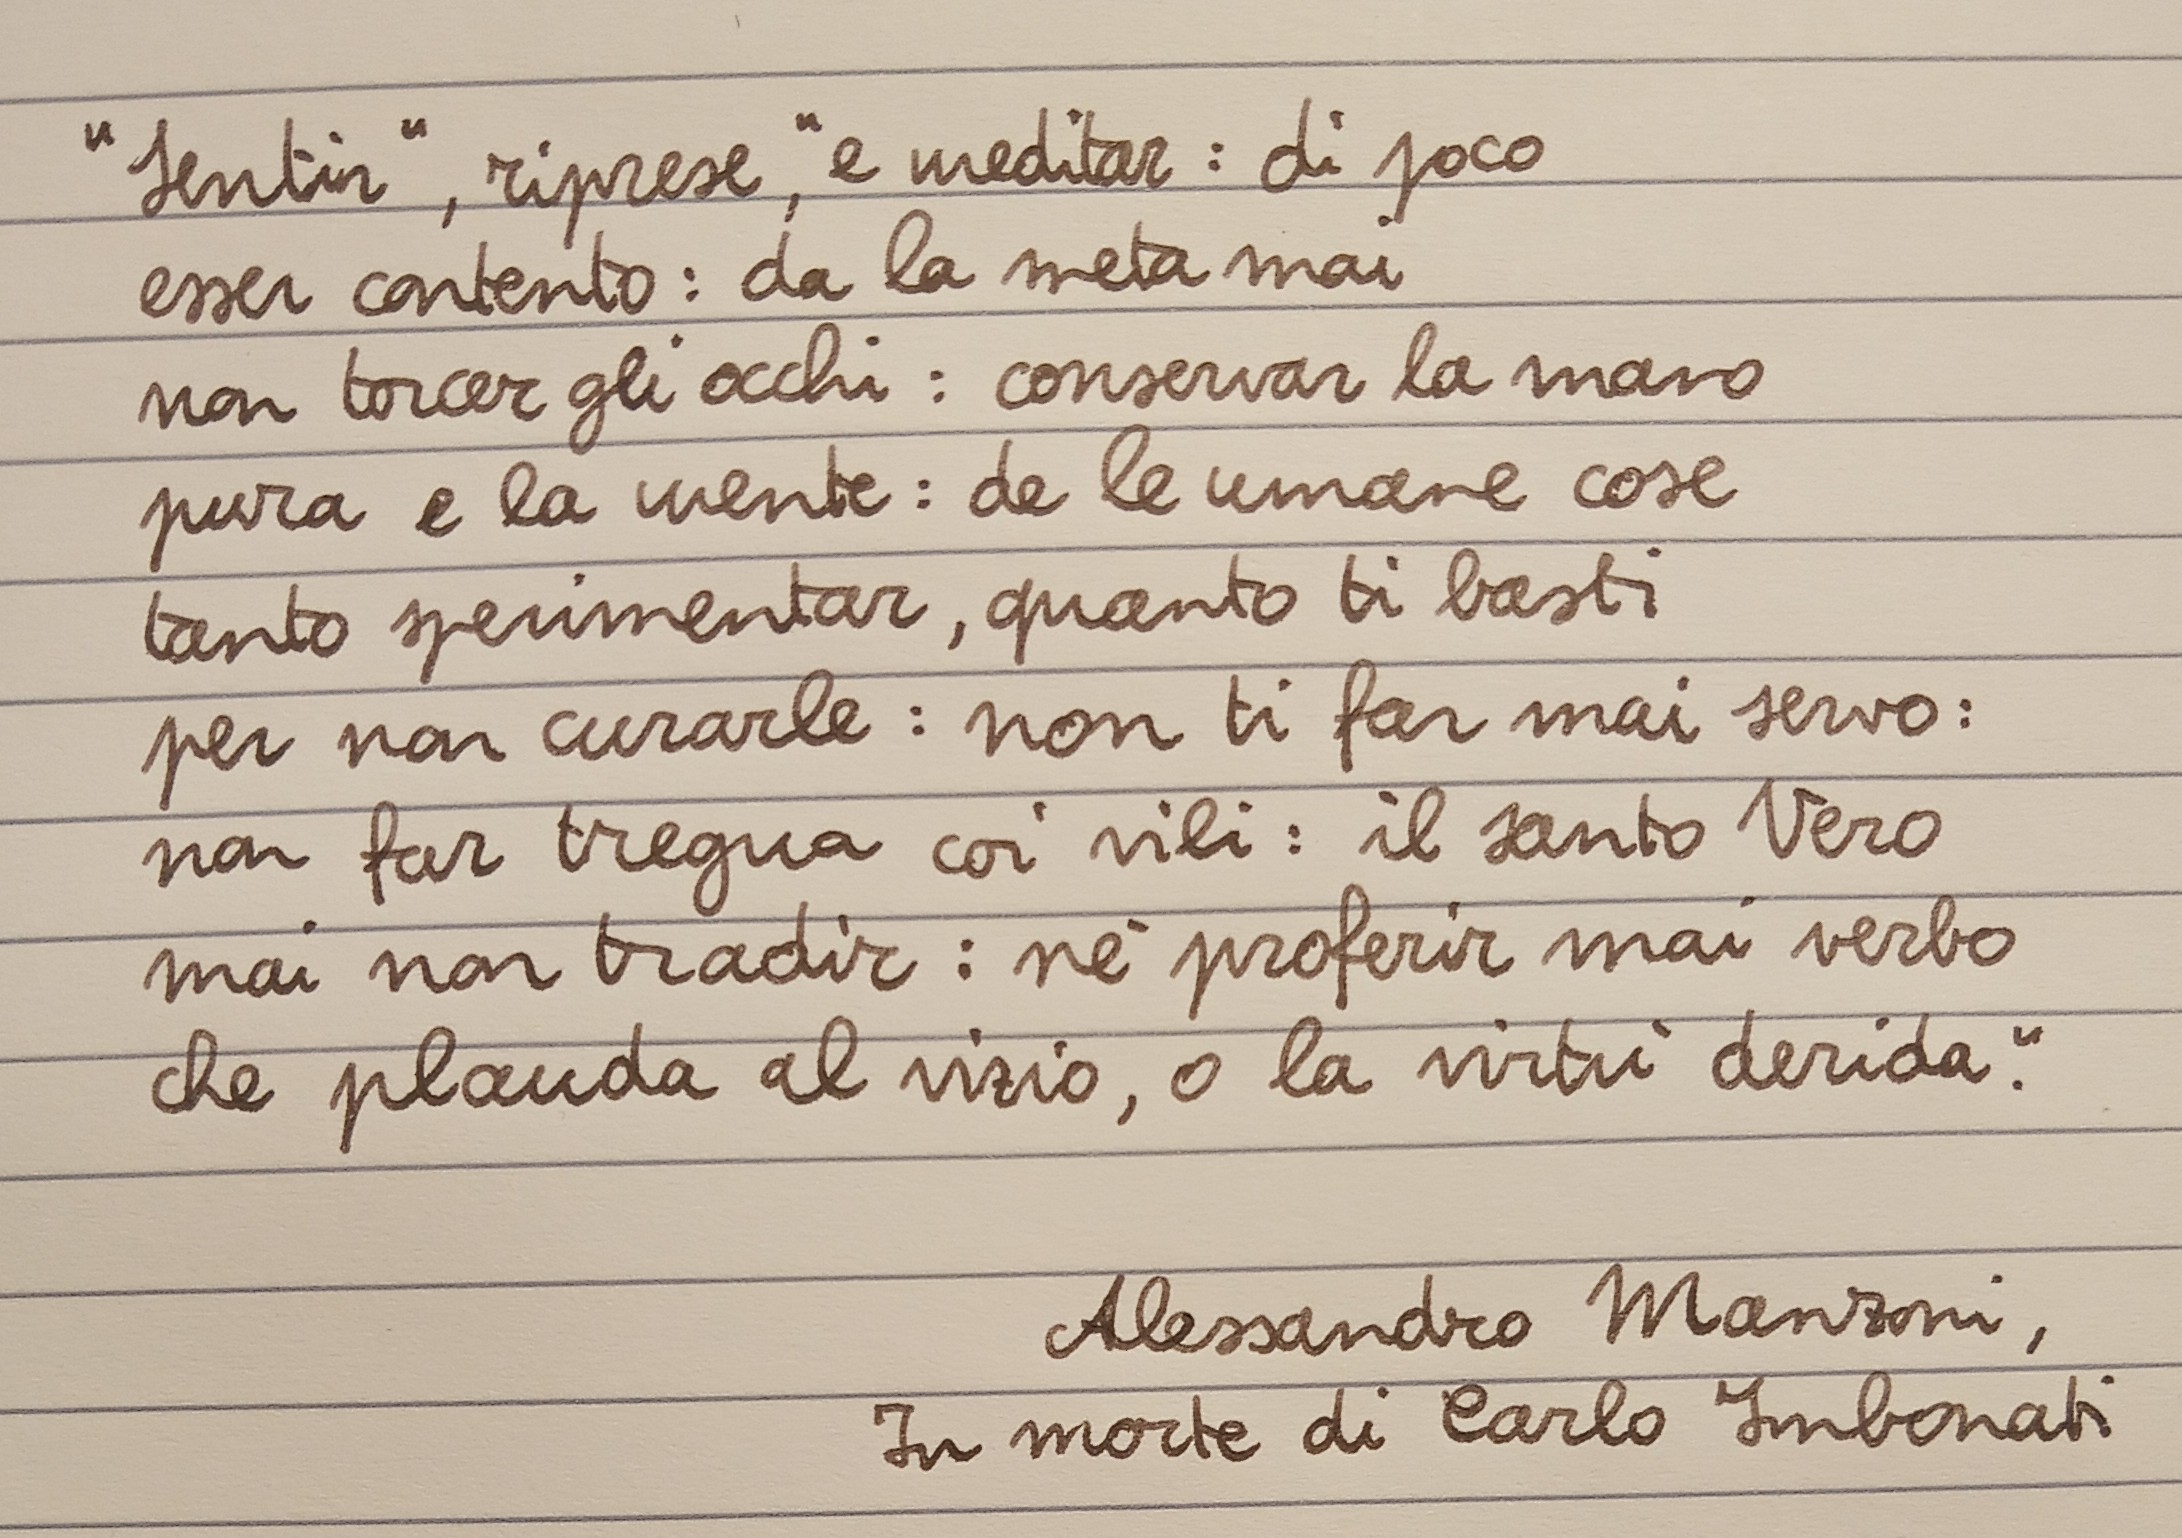 "Sentir", riprese, "e meditar: di poco
esser contento: da la meta mai
non torcer gli occhi: conservar la mano
pura e la mente: de le umane cose
tanto sperimentar, quanto ti basti
per non curarle: non ti far mai servo:
non far tregua coi vili: il santo Vero
mai non tradir: né proferir mai verbo
che plauda al vizio, o la virtù derida."
Alessandro Manzoni,
In morte di Carlo Imbonati